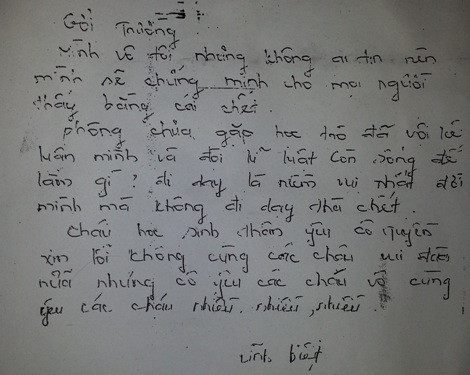 Gởi Trường
Mình vô tội nhưng không ai tin nên
mình sẽ chứng minh cho mọi người
thấy bằng cái chết.
Phòng chưa gặp học trò đã vội kết
luận mình và đòi kỉ luật còn sống để
làm gì? đi dạy là niềm vui nhất đời
mình mà không đi dạy thà chết.
Cháu học sinh thân yêu cô Tuyền
xin lỗi không cùng các cháu vui đùa
nữa nhưng cô yêu các cháu vô cùng
yêu các cháu nhiều, nhiều, nhiều.
vĩnh biệt